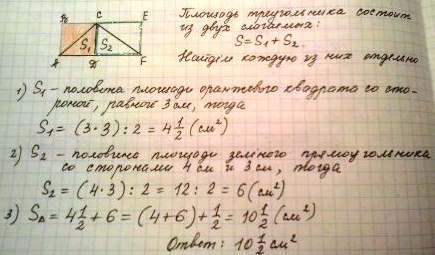 B C E
S₁ S₂
A D F
Площадь треугольника состоит
из двух слагаемых:
S = S₁ + S₂.
Найдём каждую из них отдельно
1) S₁ - половина площади оранжевого квадрата со сто-
роной, равной 3 см, тогда
S₁ = (3·3) : 2 = 4 1/2 (см²)
2) S₂ - половина площади зелёного прямоугольника
со сторонами 4 см и 3 см, тогда
S₂ = (4·3) : 2 = 12 : 2 = 6 (см²)
3) S△ = 4 1/2 + 6 = (4+6) + 1/2 = 10 1/2 (см²)
Ответ: 10 1/2 см²